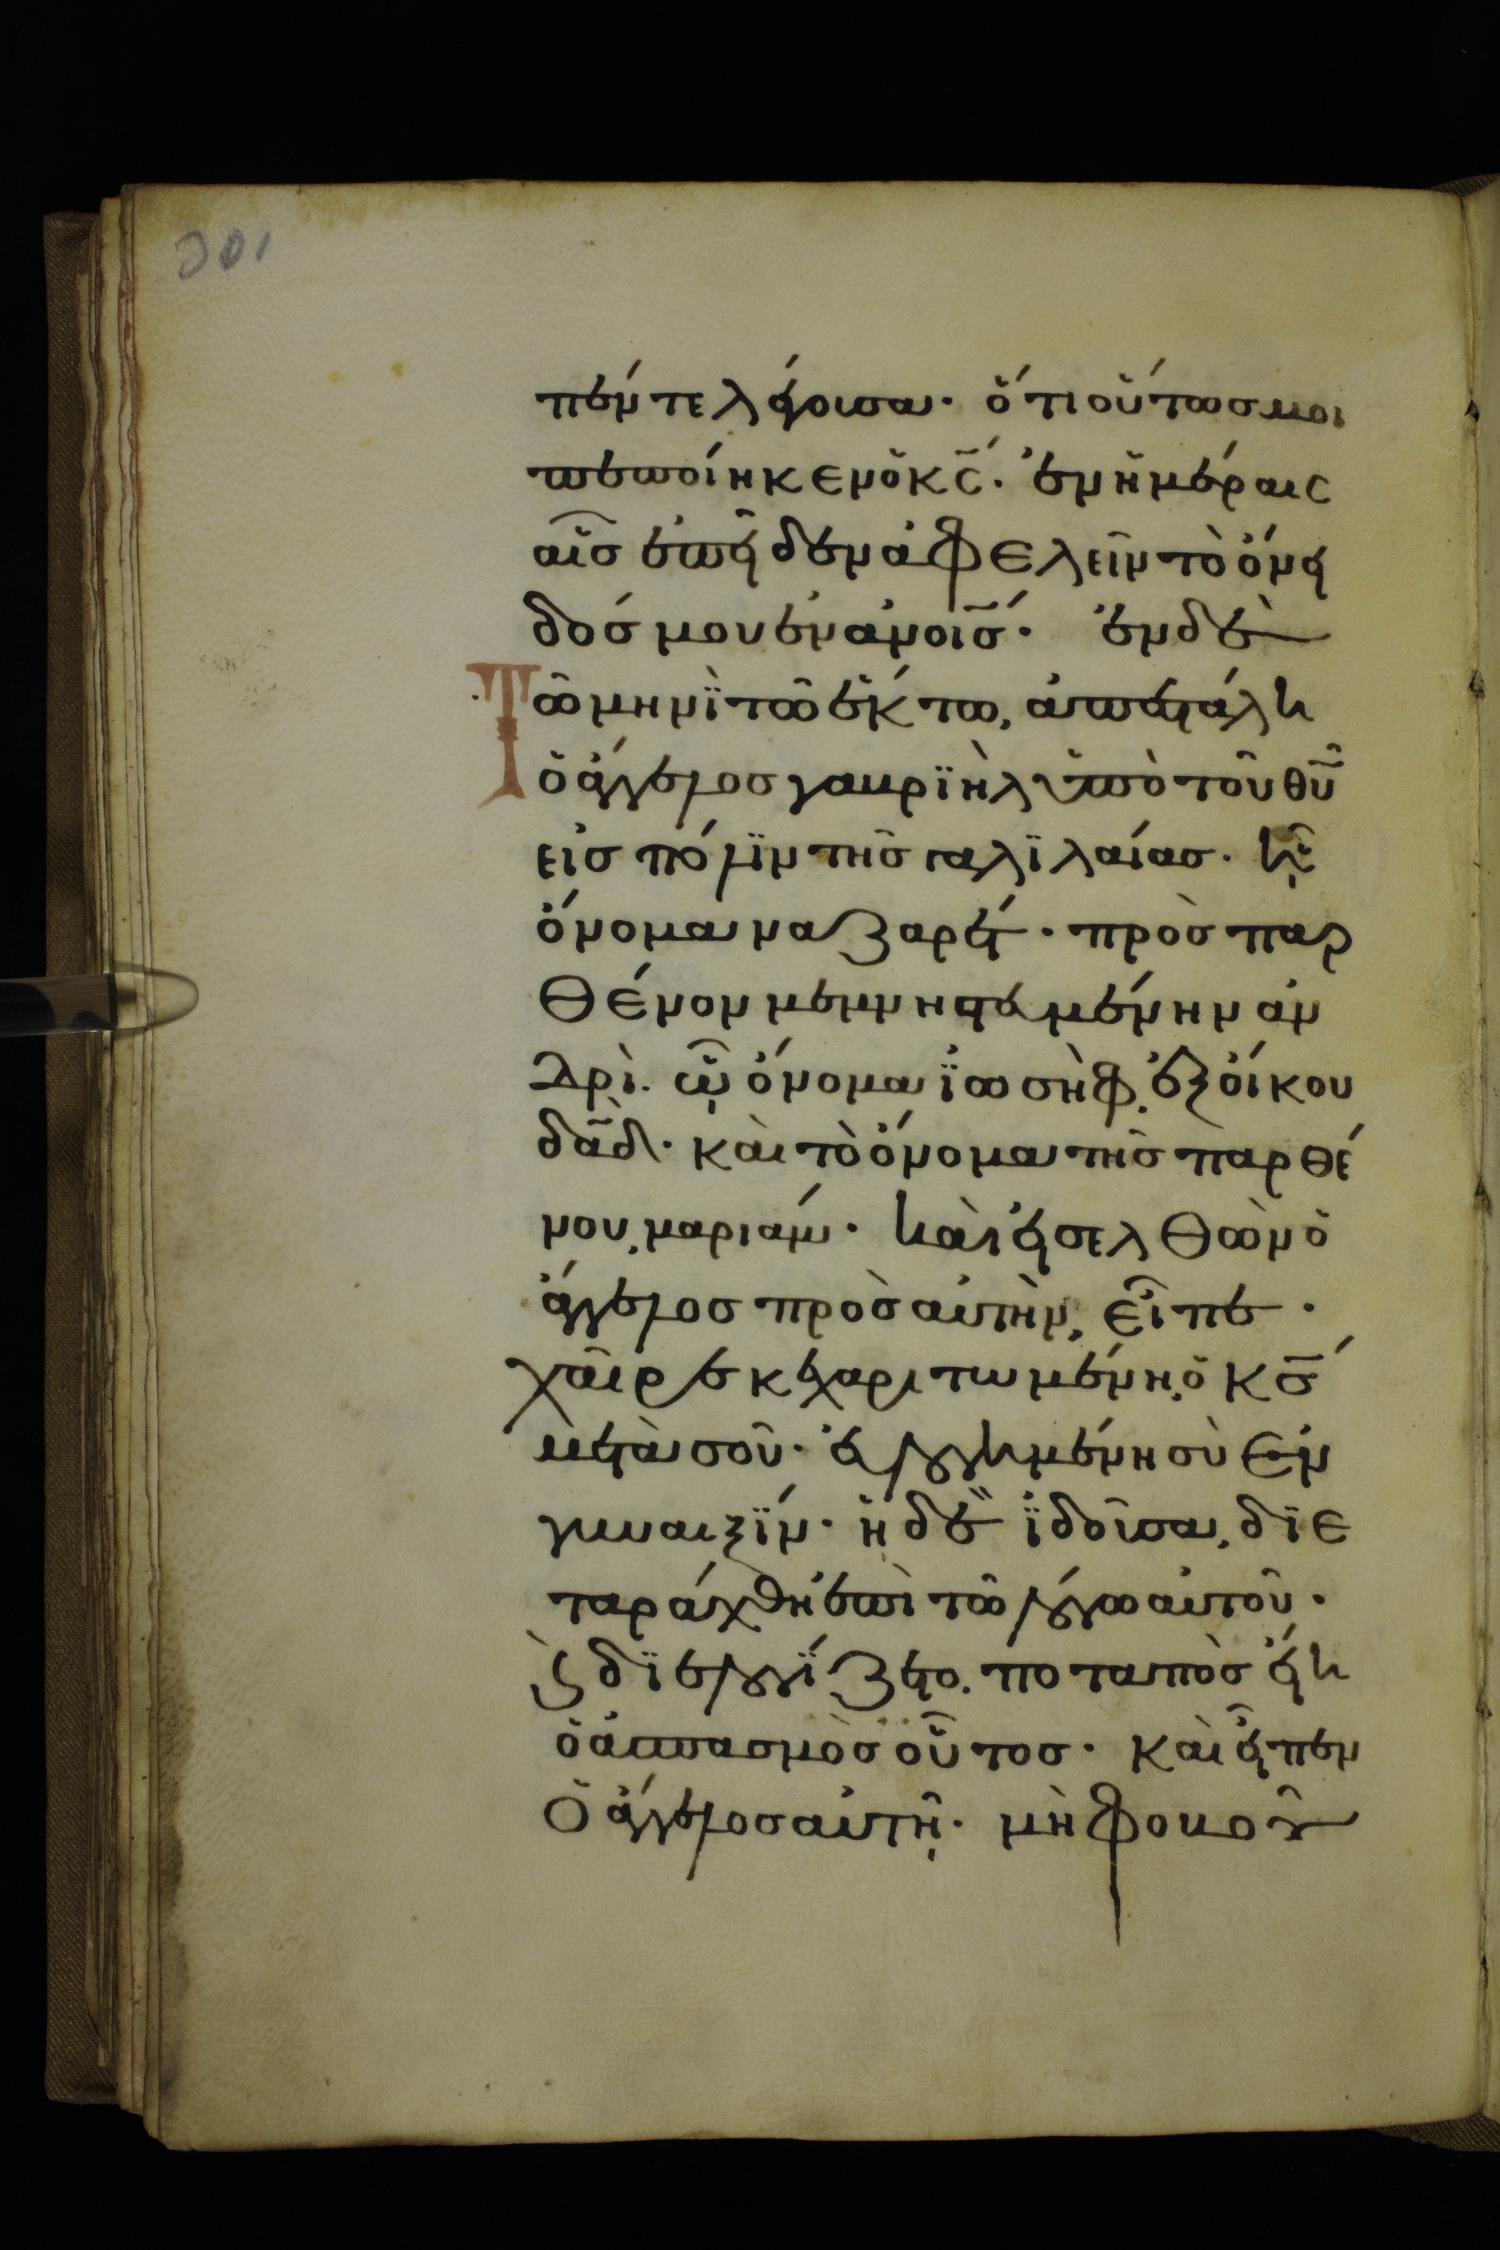 301
πέντε λέγουσα· ὅτι οὕτως μοι
πεποίηκεν ὁ κ̅ς̅· ἐν ἡμέραις
αἷς ἐπεῖδεν ἀφελεῖν τὸ ὄνει
δός μου ἐν ἀν̅οις· ἐν δὲ
Τῶ μηνῒ τῶ ἕκτω, ἀπεστάλη
ὁ ἄγγελος γαβρϊὴλ ὑπὸ τοῦ θ̅υ̅
εἰς πόλϊν τῆς γαλϊλαίας· ἧ
ὄνομα ναζαρέτ· πρὸς παρ
θένον μεμνηστευμένην ἀν
δρὶ· ᾧ ὄνομα ϊωσὴφ, ἐξ οἴκου
δα̅δ· καὶ τὸ ὄνομα τῆς παρθέ
νου, μαριάμ· καὶ εἰσελθὼν ὁ
ἄγγελος πρὸς αὐτὴν, εἶπε·
χαῖρε κεχαριτωμένη, ὁ κ̅ς̅
μετὰ σοῦ· εὐλογημένη σὺ ἐν
γυναιξΐν· ἡ δὲ ϊδοῦσα, δϊε
ταράχθη ἐπὶ τῶ λόγω αὐτοῦ·
ϗ δϊελογΐζετο. ποταπὸς εἴη
ὁ ἀσπασμὸς οὗτος· καὶ εἶπεν
ὁ ἄγγελος αὐτῇ· μὴ φοβοῦ